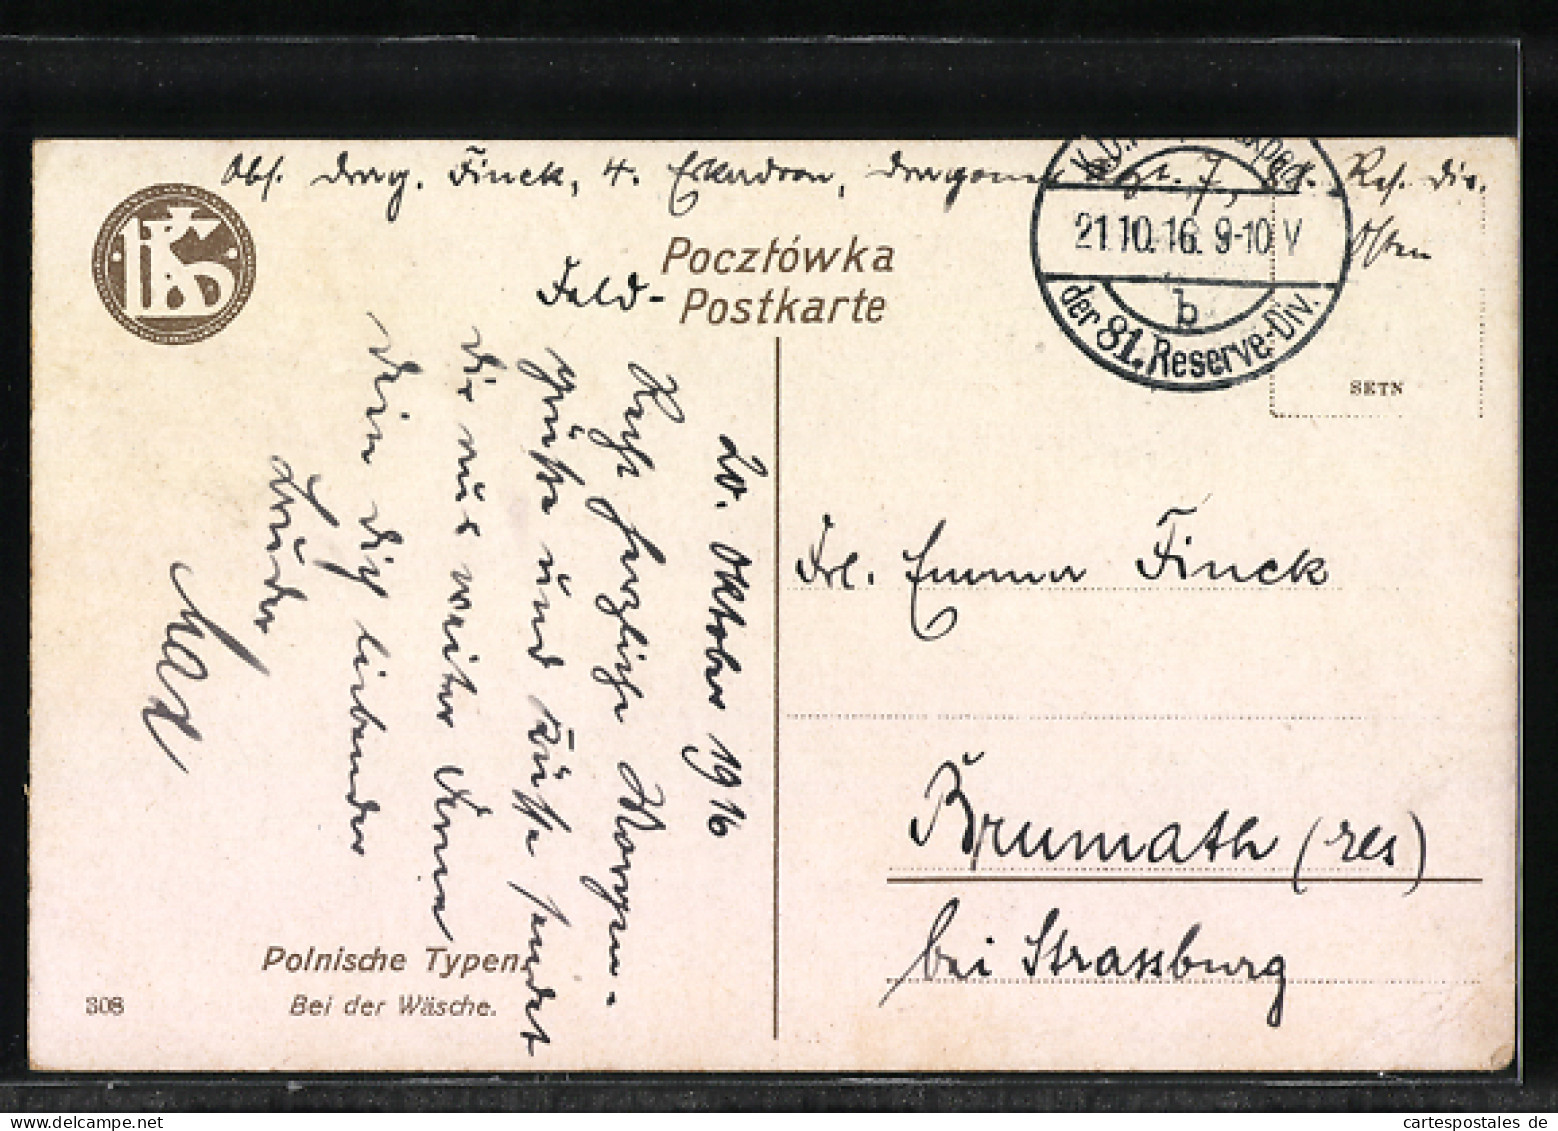 Abs. Drag. Finck, 4. Eskadron, Dragoner Rgt. 7, 81. Res. Div.
Osten
Pocztówka
Feld-Postkarte
21.10.16. 9-10 V
b
der 81. Reserve-Div.
SETN
20. Oktober 1916
Recht herzliche Morgen-
grüße und Küsse sendet
Dir aus weiter Ferne
Dein Dich liebender
Bruder
Frl. Emma Finck
Brumath (Els)
bei Strassburg
Polnische Typen.
308 Bei der Wäsche.
cartespostales de